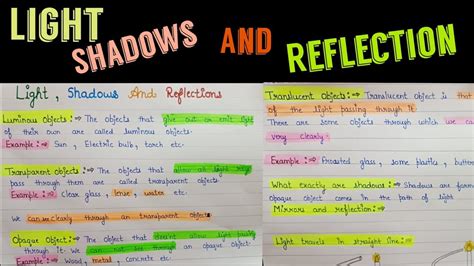 LIGHT
SHADOWS AND REFLECTION
Light, Shadows And Reflections
Luminous Objects :⇒ The objects that give out or emit light
of their own are called luminous objects.
Example :⇒ Sun, Electric bulb, torch etc.
Transparent Objects :⇒ The objects that allow all light rays
pass through them are called transparent objects.
Example :⇒ Clear glass, lense, water etc.
We can see clearly through an transparent objects
Opaque Object :⇒ The object that doesn't allow light passing
through it. We can not see through an opaque object.
Example :⇒ Wood, metal, concrete etc.
Translucent Objects :⇒ Translucent object is that
of the light passing through it
There are some objects through which we ca
very clearly.
Example :⇒ Frosted glass, some plastic, butter
What exactly are shadows :⇒ Shadows are form
opaque object comes in the path of light
Mirrors and reflection :⇒
Light travels in straight line :⇒